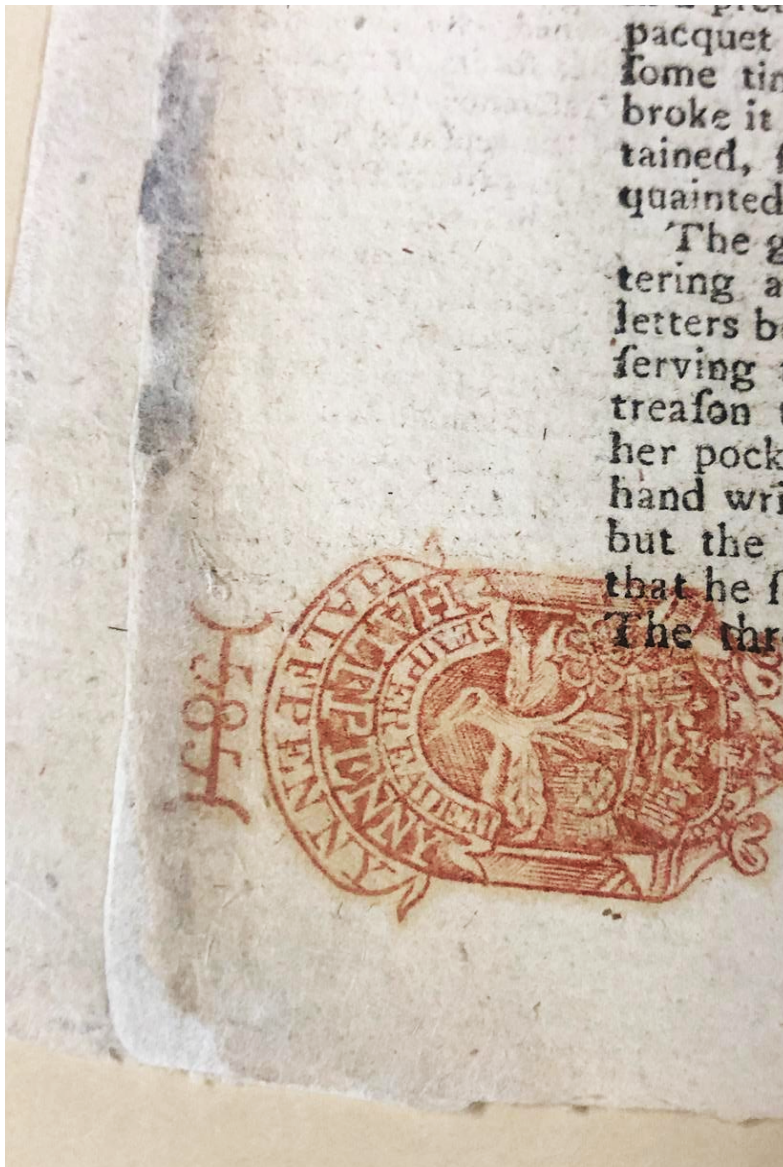 pacquet
ſome tin
broke it
tained, ſ
quainted
The g
tering a
letters b
ſerving
treaſon
her pock
hand wri
but the
that he ſ
The thr
HALF PENNY
HALF PENNY
SEMPER EADEM